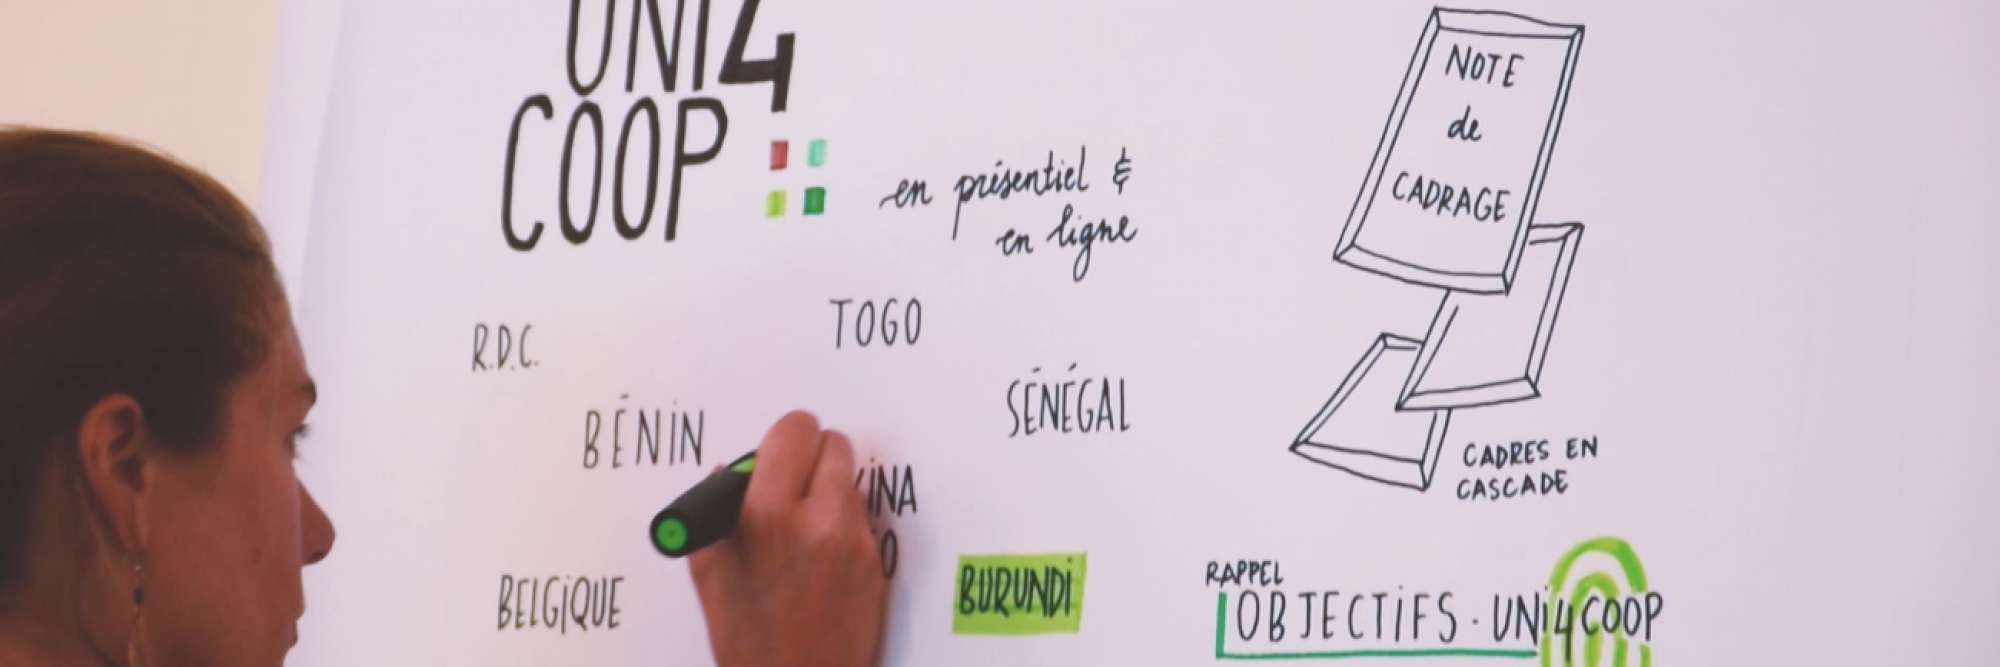 UNI4
COOP
en présentiel &
en ligne
R.D.C.
TOGO
BÉNIN
SÉNÉGAL
BELGIQUE
BURUNDI
NOTE
de
CADRAGE
CADRES EN
CASCADE
RAPPEL
OBJECTIFS · UNI4COOP